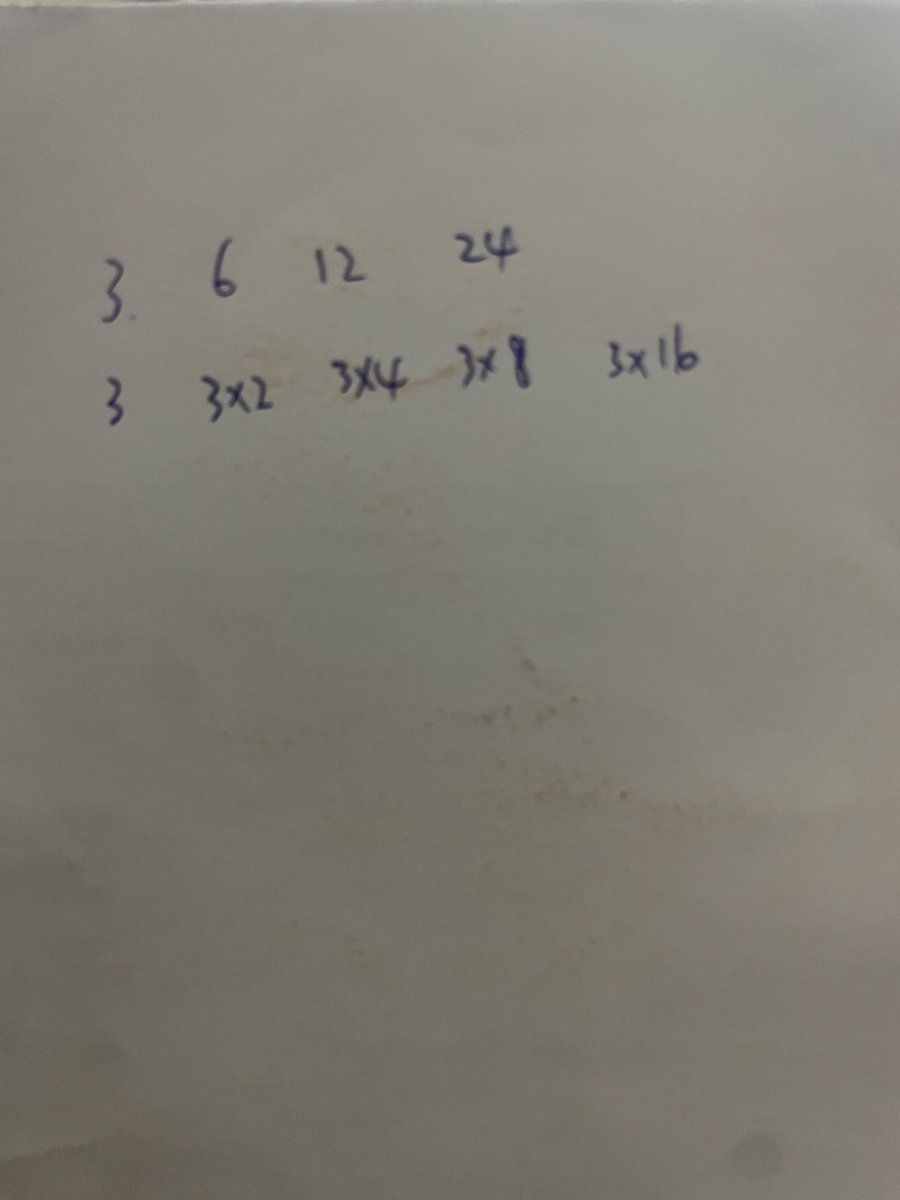 3. 6 12 24
3 3×2 3×4 3×8 3×16